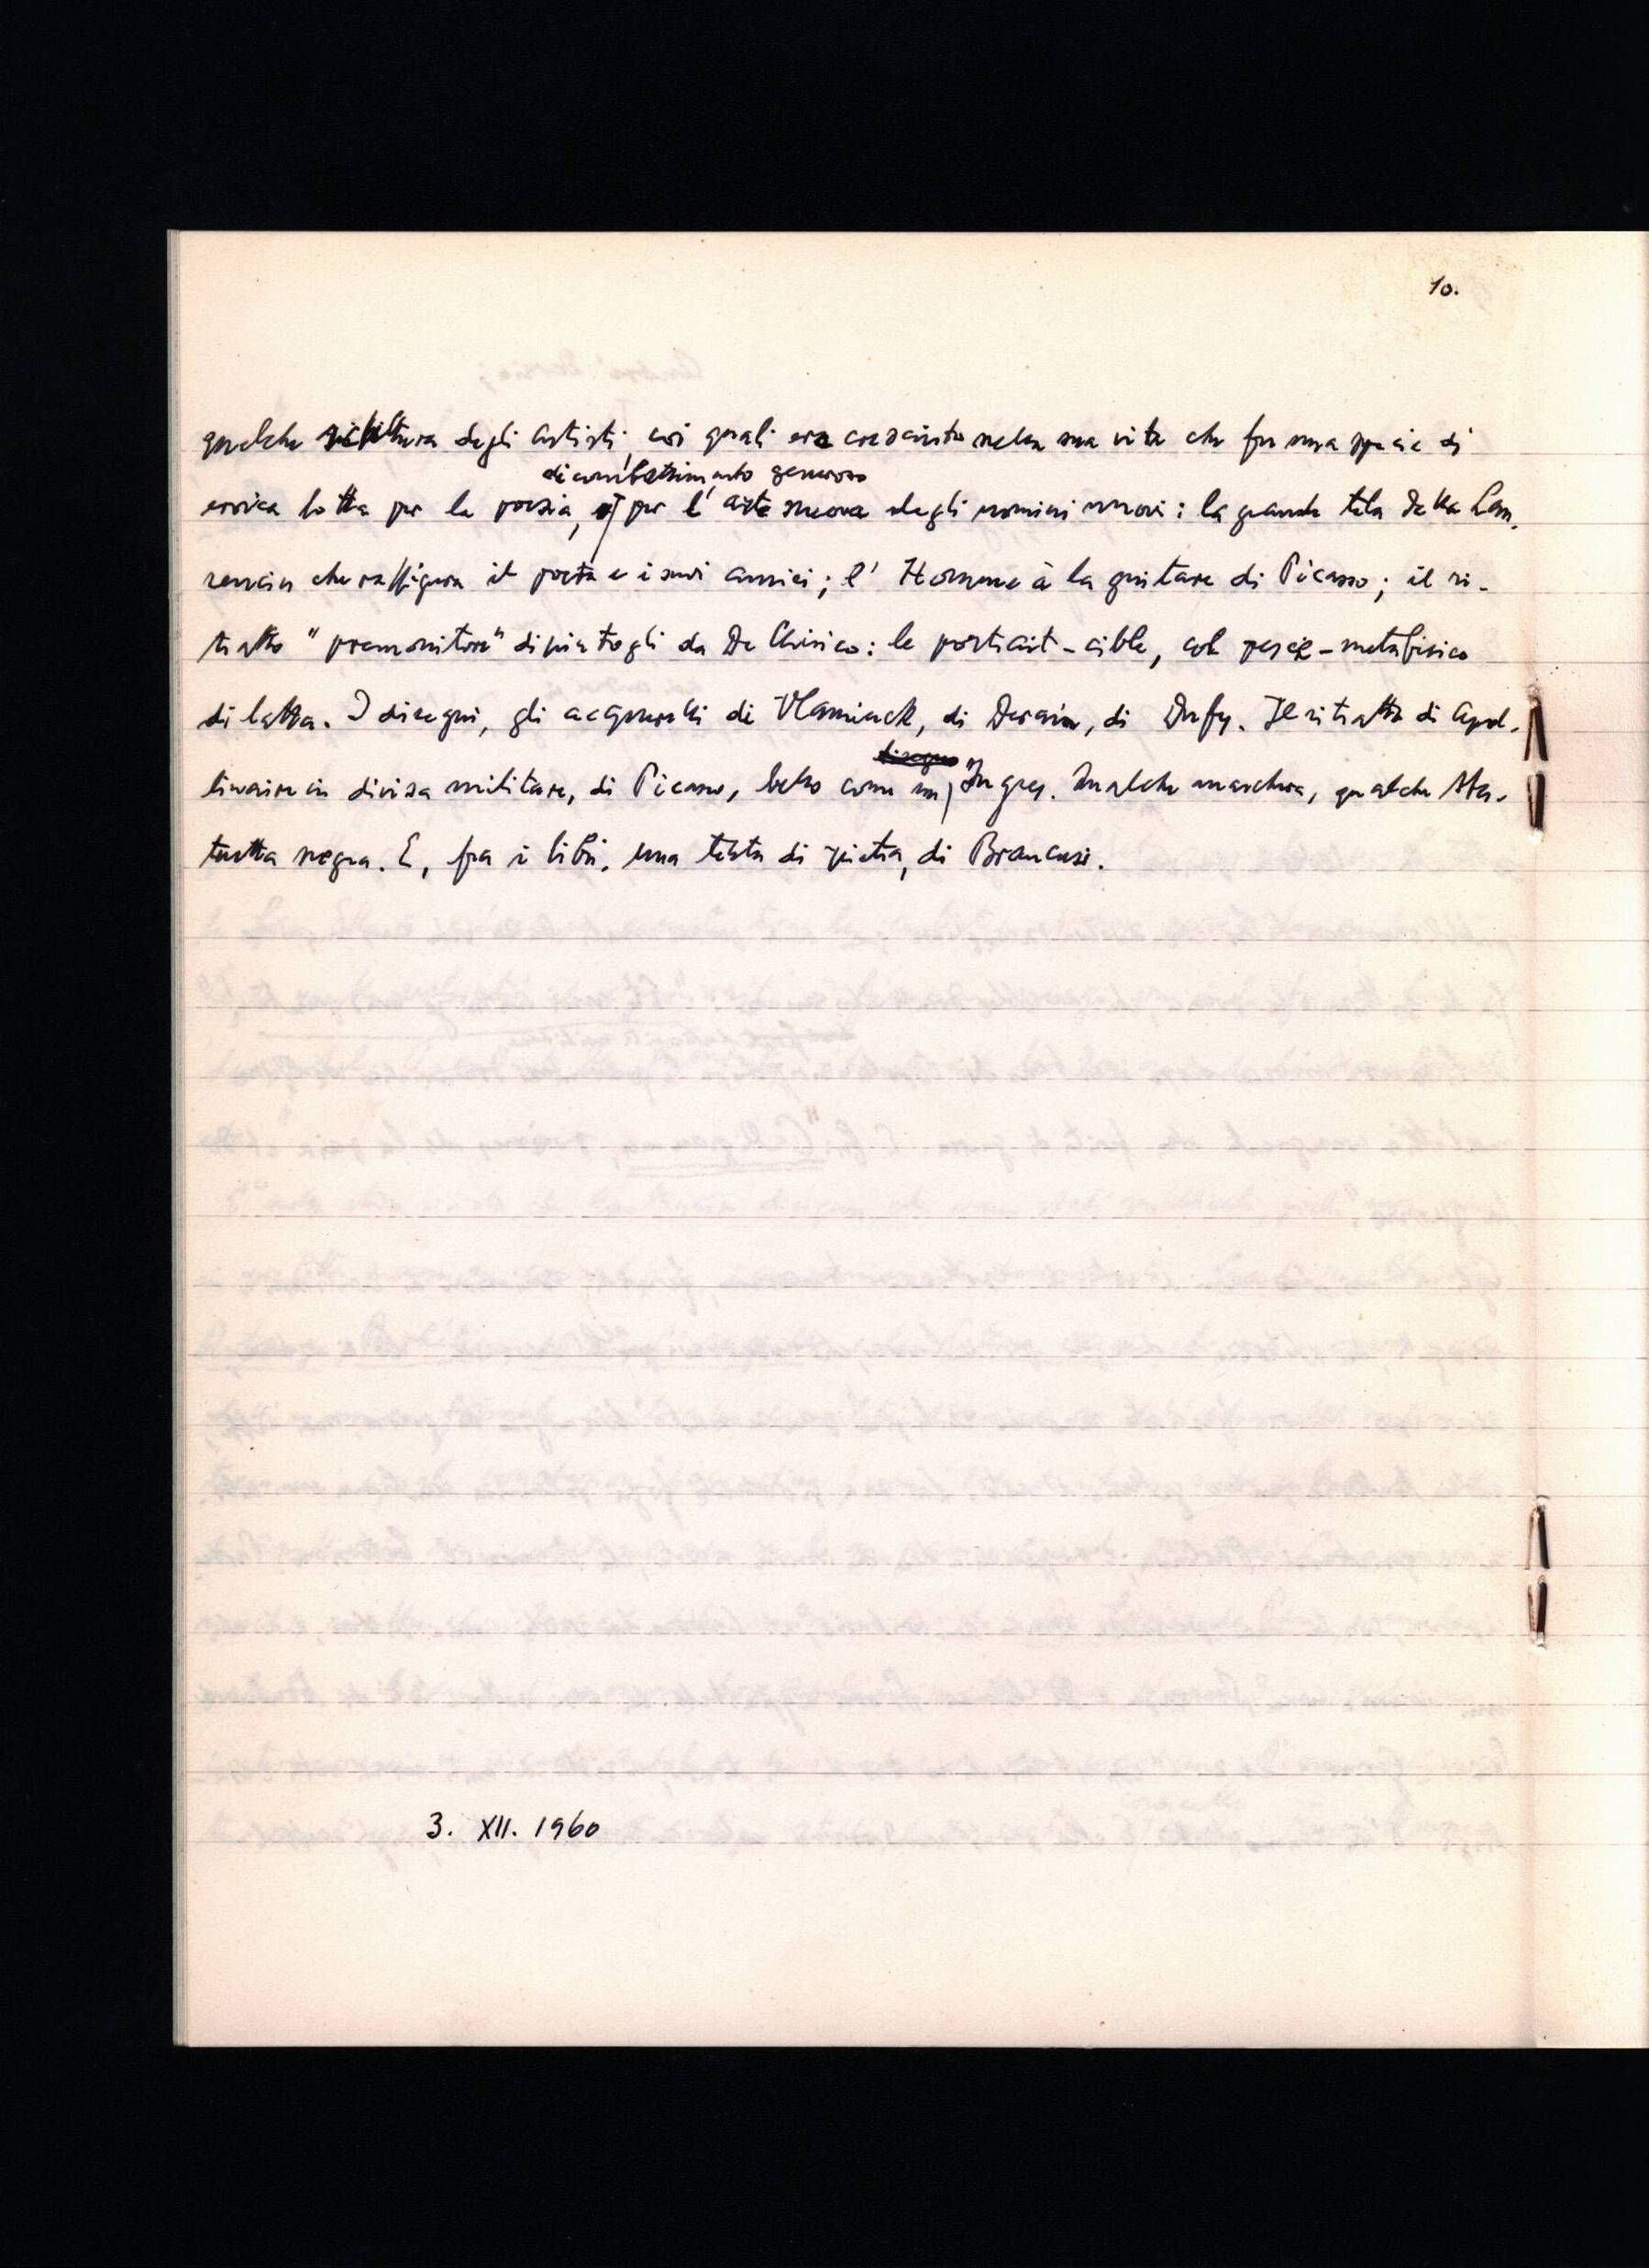 10.
qualche scultura degli artisti coi quali era cresciuto nella sua vita che fu una specie di
di combattimento generoso
eroica lotta per la poesia, e per l'arte nuova degli uomini nuovi: la grande tela della Lau-
rencin che raffigura il poeta e i suoi amici; l'Homme à la guitare di Picasso; il ri-
tratto "premonitore" dipintogli da De Chirico: le portrait-cible, col pesce-metafisico
di latta. I disegni, gli acquerelli di Vlaminck, di Derain, di Dufy. Il ritratto di Apol-
disegno
linaire in divisa militare, di Picasso, bello come un Ingres. Qualche maschera, qualche sta-
tuetta negra. E, fra i libri, una testa di pietra, di Brancusi.
3. XII. 1960